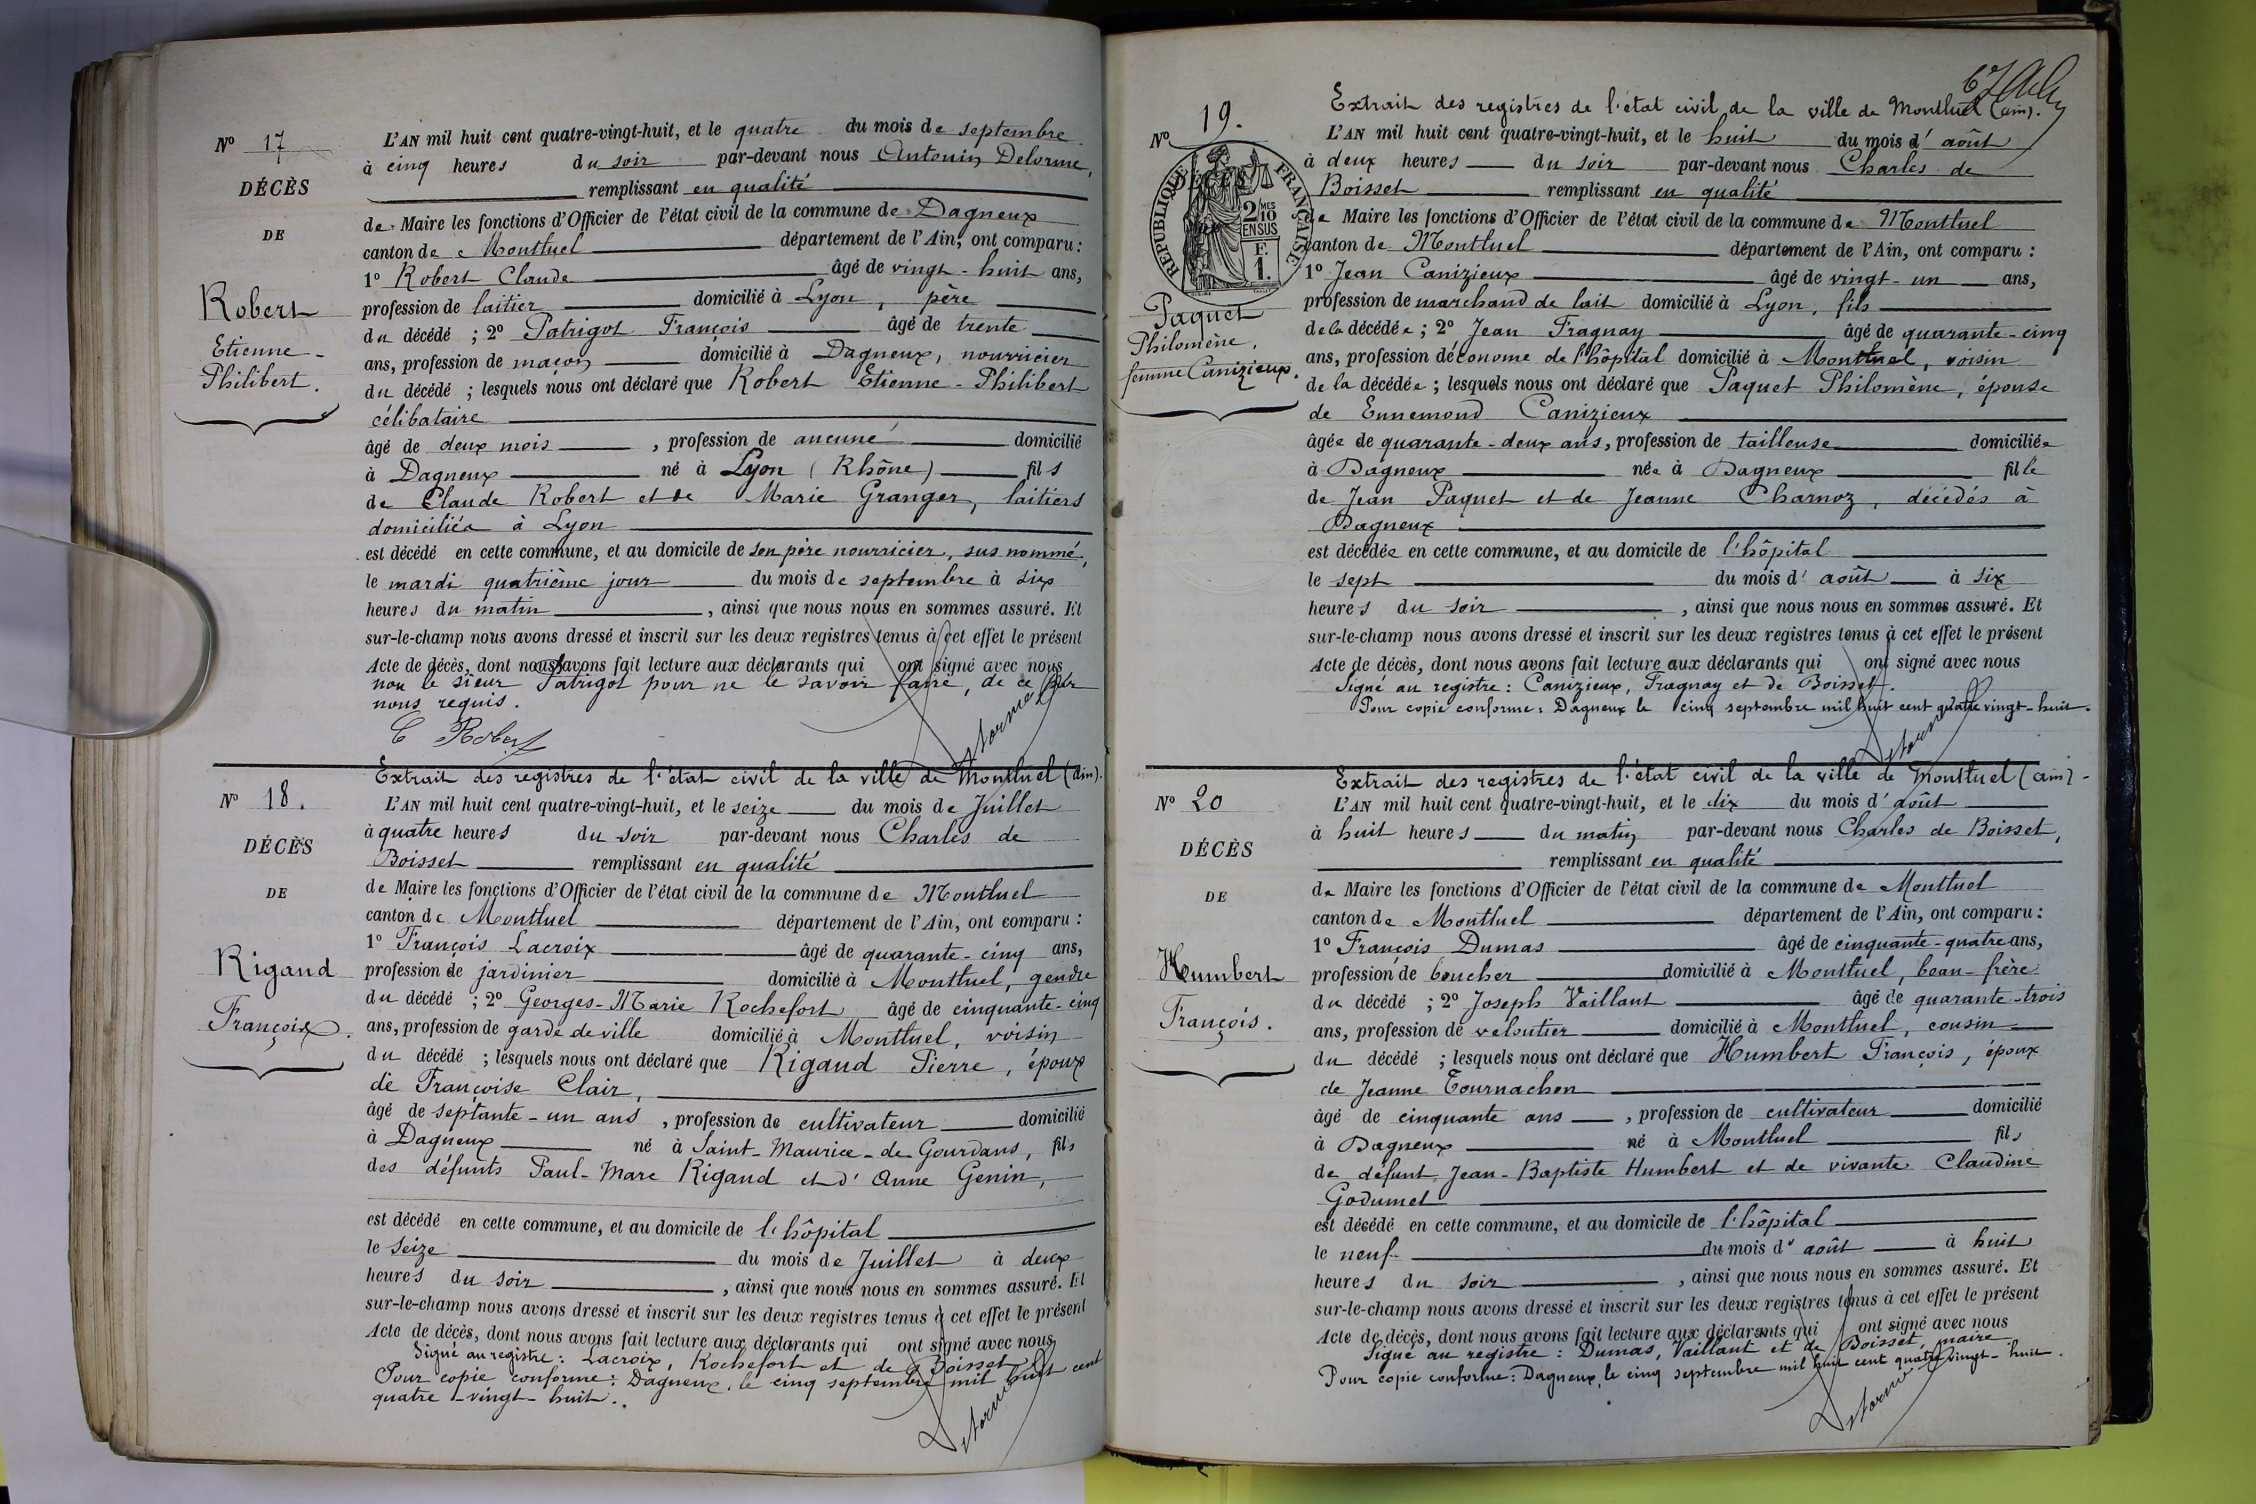 Nº 17
DÉCÈS
DE
Robert
Etienne-
Philibert.
L'AN mil huit cent quatre-vingt-huit, et le quatre du mois de septembre
à cinq heures du soir par-devant nous Antonin Delorme,
remplissant en qualité
de Maire les fonctions d'Officier de l'état civil de la commune de Dagneux
canton de Montluel département de l'Ain, ont comparu :
1º Robert Claude âgé de vingt-huit ans,
profession de laitier domicilié à Lyon, père
du décédé ; 2º Patrigot François âgé de trente
ans, profession de maçon domicilié à Dagneux, nourricier
du décédé ; lesquels nous ont déclaré que Robert Etienne-Philibert
célibataire
âgé de deux mois , profession de aucune domicilié
à Dagneux né à Lyon (Rhône) fils
de Claude Robert et de Marie Granger, laitiers
domiciliés à Lyon
est décédé en cette commune, et au domicile de son père nourricier, sus nommé,
le mardi quatrième jour du mois de septembre à six
heures du matin , ainsi que nous nous en sommes assuré. Et
sur-le-champ nous avons dressé et inscrit sur les deux registres tenus à cet effet le présent
Acte de décès, dont nous avons fait lecture aux déclarants qui ont signé avec nous
non le sieur Patrigot pour ne le savoir faire, de ce par
nous requis.
C Robert
Delorme
Nº 18.
DÉCÈS
DE
Rigaud
François.
Extrait des registres de l'état civil de la ville de Montluel (Ain).
L'AN mil huit cent quatre-vingt-huit, et le seize du mois de Juillet
à quatre heures du soir par-devant nous Charles de
Boisset remplissant en qualité
de Maire les fonctions d'Officier de l'état civil de la commune de Montluel
canton de Montluel département de l'Ain, ont comparu :
1º François Lacroix âgé de quarante-cinq ans,
profession de jardinier domicilié à Montluel, gendre
du décédé ; 2º Georges-Marie Rochefort âgé de cinquante-cinq
ans, profession de garde de ville domicilié à Montluel, voisin
du décédé ; lesquels nous ont déclaré que Rigaud Pierre, époux
de Françoise Clair,
âgé de septante-un ans , profession de cultivateur domicilié
à Dagneux né à Saint-Maurice-de-Gourdans, fils
des défunts Paul-Marc Rigaud et d'Anne Genin,
est décédé en cette commune, et au domicile de l'hôpital
le seize du mois de Juillet à deux
heures du soir , ainsi que nous nous en sommes assuré. Et
sur-le-champ nous avons dressé et inscrit sur les deux registres tenus à cet effet le présent
Acte de décès, dont nous avons fait lecture aux déclarants qui ont signé avec nous
Signé au registre : Lacroix, Rochefort et de Boisset
Pour copie conforme : Dagneux, le cinq septembre mil huit cent
quatre-vingt-huit.
Delorme
67
Nº 19.
DÉCÈS
RÉPUBLIQUE FRANÇAISE
2 MES
10
EN SUS
F.
1.
Paquet
Philomène,
femme Canizieux.
Extrait des registres de l'état civil de la ville de Montluel (ain).
L'AN mil huit cent quatre-vingt-huit, et le huit du mois d'août
à deux heures du soir par-devant nous Charles de
Boisset remplissant en qualité
de Maire les fonctions d'Officier de l'état civil de la commune de Montluel
canton de Montluel département de l'Ain, ont comparu :
1º Jean Canizieux âgé de vingt-un ans,
profession de marchand de lait domicilié à Lyon, fils
de la décédée ; 2º Jean Fragnay âgé de quarante-cinq
ans, profession d'économe de l'hôpital domicilié à Montluel, voisin
de la décédée ; lesquels nous ont déclaré que Paquet Philomène, épouse
de Ennemond Canizieux
âgée de quarante-deux ans, profession de tailleuse domiciliée
à Dagneux née à Dagneux fille
de Jean Paquet et de Jeanne Charnoz, décédés à
Dagneux
est décédée en cette commune, et au domicile de l'hôpital
le sept du mois d'août à six
heures du soir , ainsi que nous nous en sommes assuré. Et
sur-le-champ nous avons dressé et inscrit sur les deux registres tenus à cet effet le présent
Acte de décès, dont nous avons fait lecture aux déclarants qui ont signé avec nous
Signé au registre : Canizieux, Fragnay et de Boisset.
Pour copie conforme : Dagneux le cinq septembre mil huit cent quatre vingt-huit.
Delorme
Nº 20
DÉCÈS
DE
Humbert
François.
Extrait des registres de l'état civil de la ville de Montluel (ain)-
L'AN mil huit cent quatre-vingt-huit, et le dix du mois d'août
à huit heures du matin par-devant nous Charles de Boisset,
remplissant en qualité
de Maire les fonctions d'Officier de l'état civil de la commune de Montluel
canton de Montluel département de l'Ain, ont comparu :
1º François Dumas âgé de cinquante-quatre ans,
profession de boucher domicilié à Montluel, beau-frère
du décédé ; 2º Joseph Vaillant âgé de quarante-trois
ans, profession de veloutier domicilié à Montluel, cousin
du décédé ; lesquels nous ont déclaré que Humbert François, époux
de Jeanne Tournachon
âgé de cinquante ans , profession de cultivateur domicilié
à Dagneux né à Montluel fils
de défunt Jean-Baptiste Humbert et de vivante Claudine
Godumet
est décédé en cette commune, et au domicile de l'hôpital
le neuf du mois d'août à huit
heures du soir , ainsi que nous nous en sommes assuré. Et
sur-le-champ nous avons dressé et inscrit sur les deux registres tenus à cet effet le présent
Acte de décès, dont nous avons fait lecture aux déclarants qui ont signé avec nous
Signé au registre : Dumas, Vaillant et de Boisset, maire
Pour copie conforme : Dagneux, le cinq septembre mil huit cent quatre vingt-huit.
Delorme